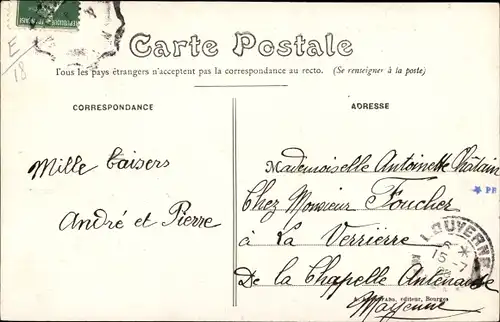 RÉPUBLIQUE FRANÇAISE
E
18
Carte Postale
Tous les pays étrangers n'acceptent pas la correspondance au recto. (Se renseigner à la poste)
CORRESPONDANCE
ADRESSE
Mille baisers
André et Pierre
Mademoiselle Antoinette Châtain
Chez Monsieur Foucher
à La Verrierre
De la Chapelle Antenaise
Mayenne
LOUVERNÉ
15-7
éditeur, Bourges